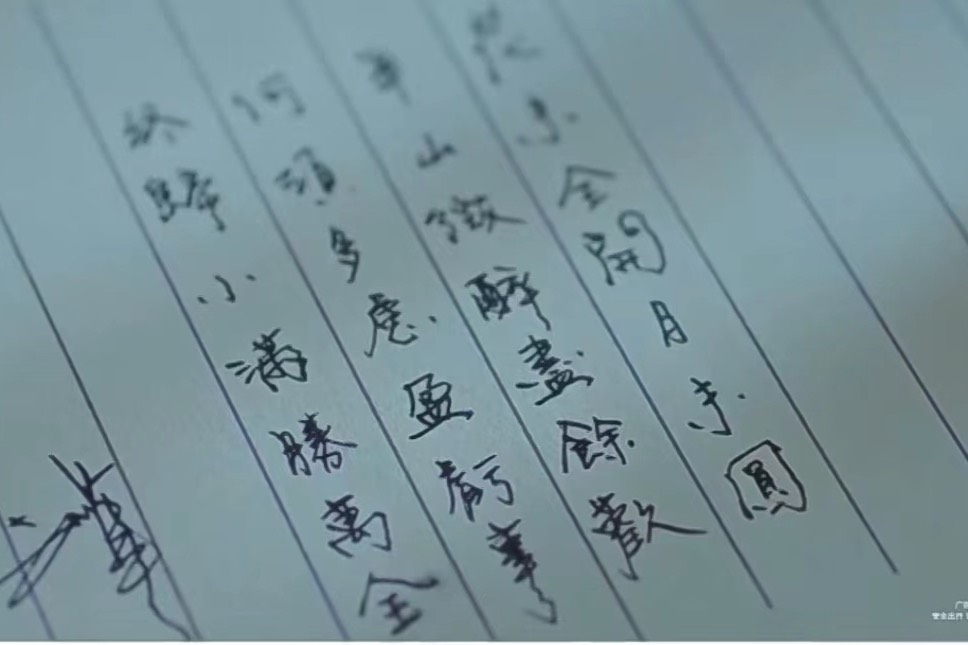 花未全開月未圓
半山微醉盡餘歡
何須多慮盈虧事
終歸小滿勝萬全